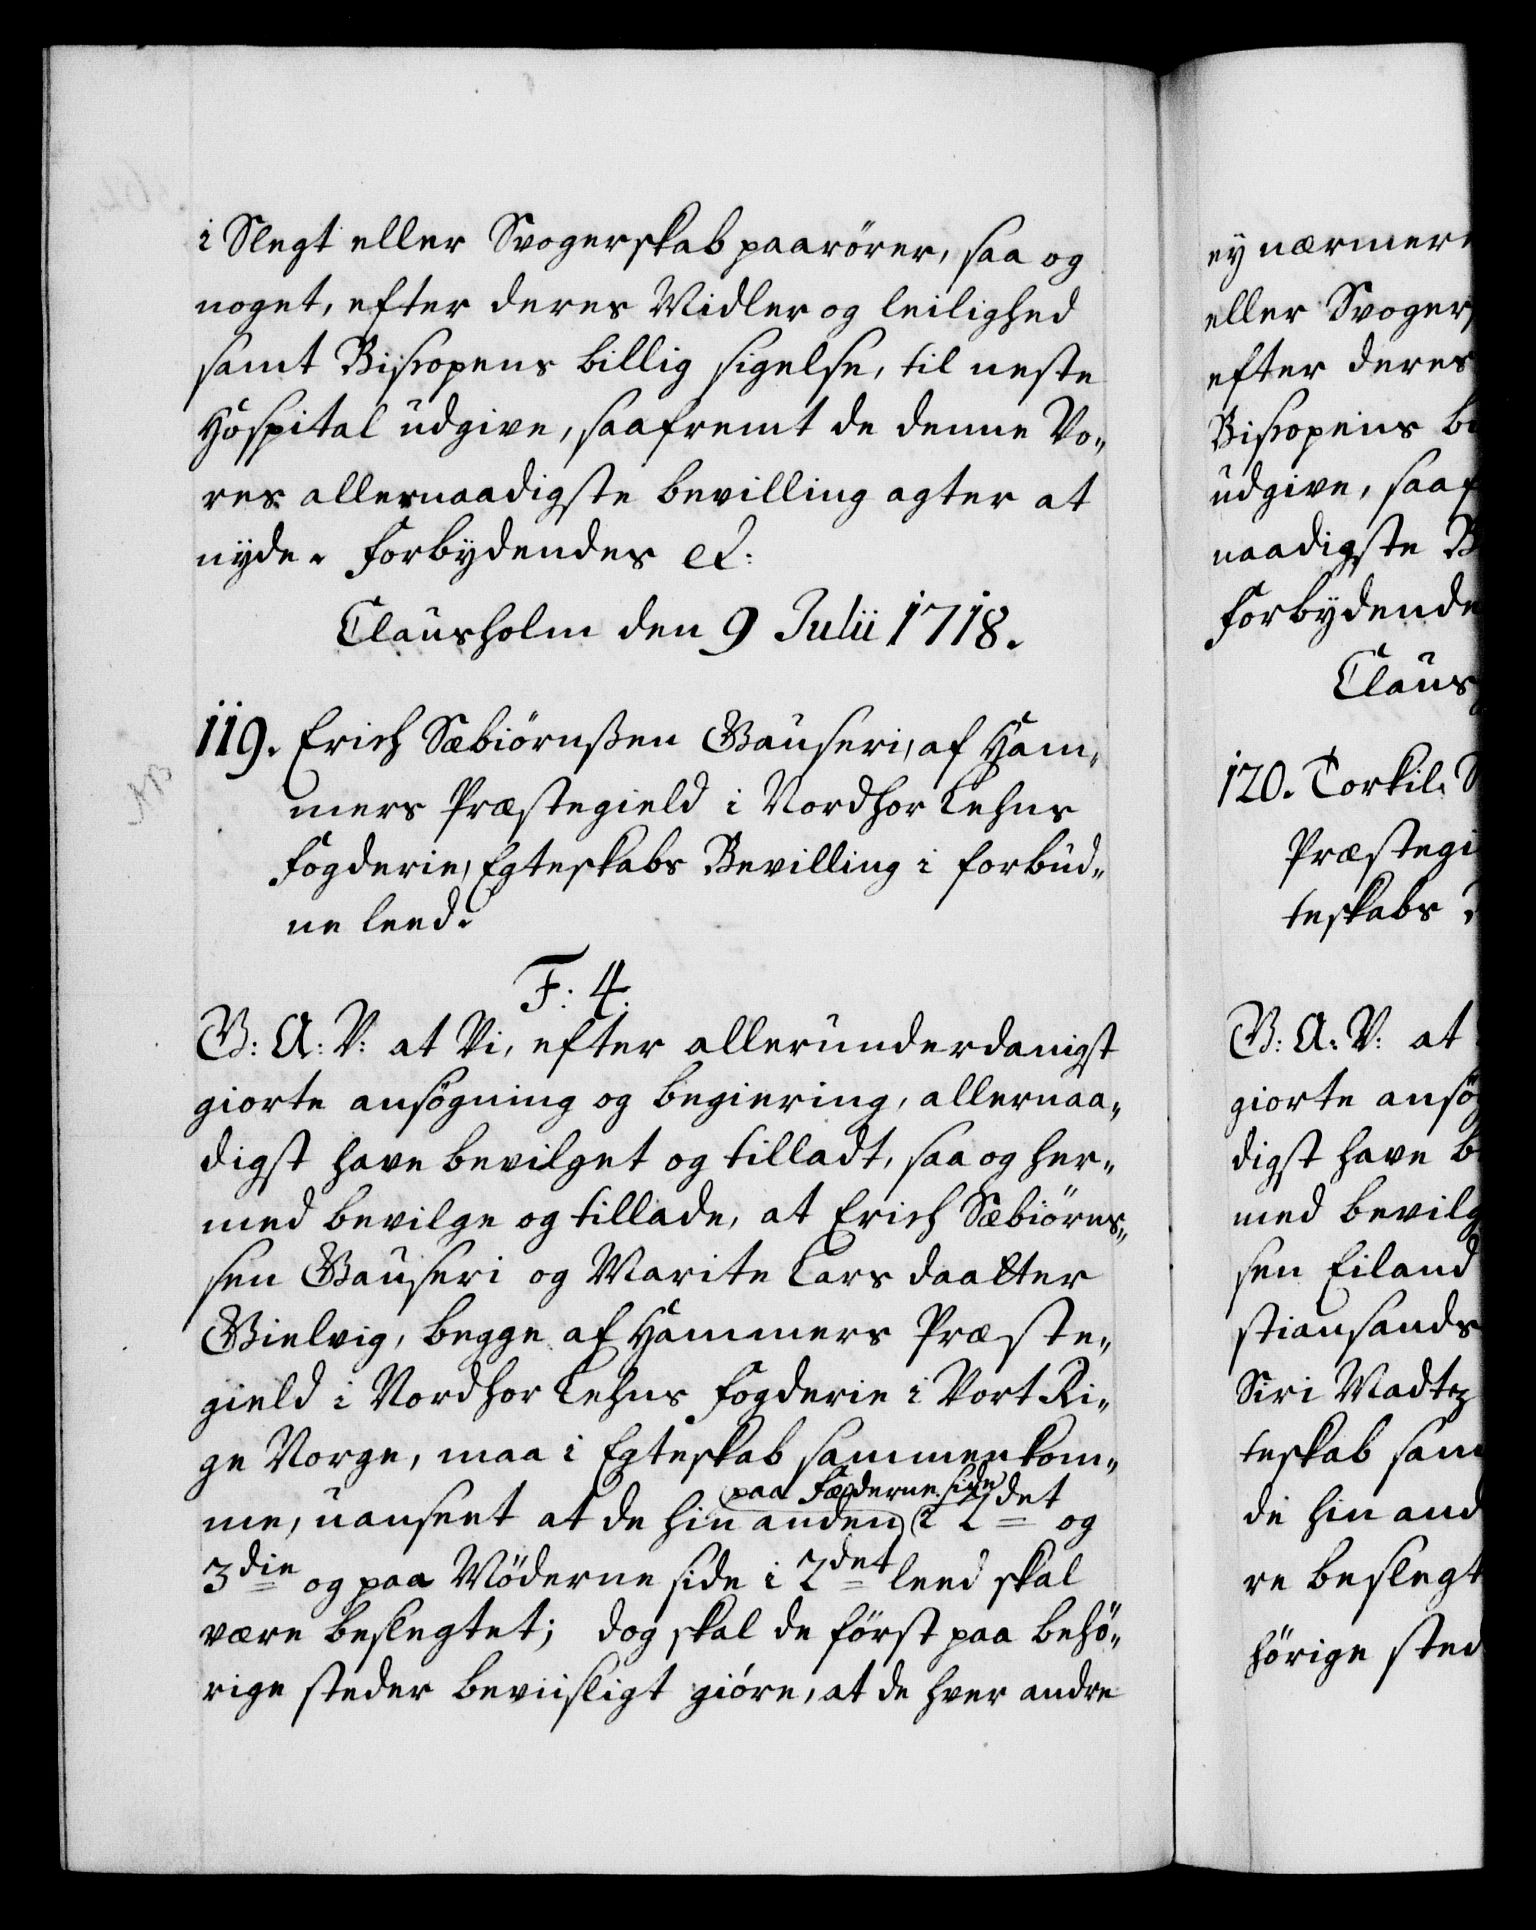 i Slegt eller Svogerskab paarörer, saa og
noget, efter deres Midler og leilighed
samt Bispopens billig sigelse, til neste
Hospital udgive, saafremt de denne Vo„
res allernaadigste bevilling agter at
nyde. Forbydendes &:
Clausholm den 9 Julii 1718.
119. Erich Sæbiörnßen Gauseri, af Ham„
mers Præstegield i Nordhor Lehns
Fogderie, Egteskabs Bevilling i forbud„
ne leed.
F: 4.
G: A: V: at Vi, efter allerunderdanigst
giorte ansögning og begiering, allernaa„
digst have bevilget og tilladt, saa og her„
med bevilge og tillade, at Erich Sæbiörns„
sen Gauseri og Marite Lars daatter
Gielvig, begge af Hammers Præste„
gield i Nordhor Lehns Fogderie i Vort Ri„
ge Norge, maa i Egteskab sammenkom„
paa Fæderne side
me, uanseet at de hin anden i 2det og
3die og paa Möderne side i 2det leed skal
være beslegtet; dog skal de först paa behö„
rige steder beviisligt giöre, at de hver andre
ey nærmere
eller Svogers
efter deres
Bispopens bi
udgive, saaf
naadigste B
Forbydende
Claus
120. Torkil S
Præstegi
teskabs
G: A: V: at
giorte ansög
digst have b
med bevilg
sen Eiland
stiansands
Siri Madtz
teskab sam
de hin and
re beslegt
hörige sted